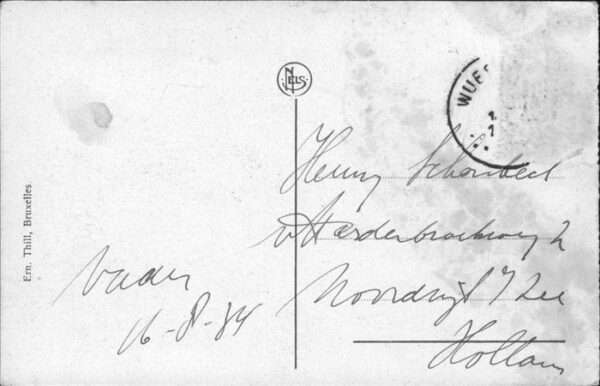 NELS
WUE
Ern. Thill, Bruxelles
Henny Schonbeck
2
Noordwijk / Zee
Holland
Vader
16-8-34